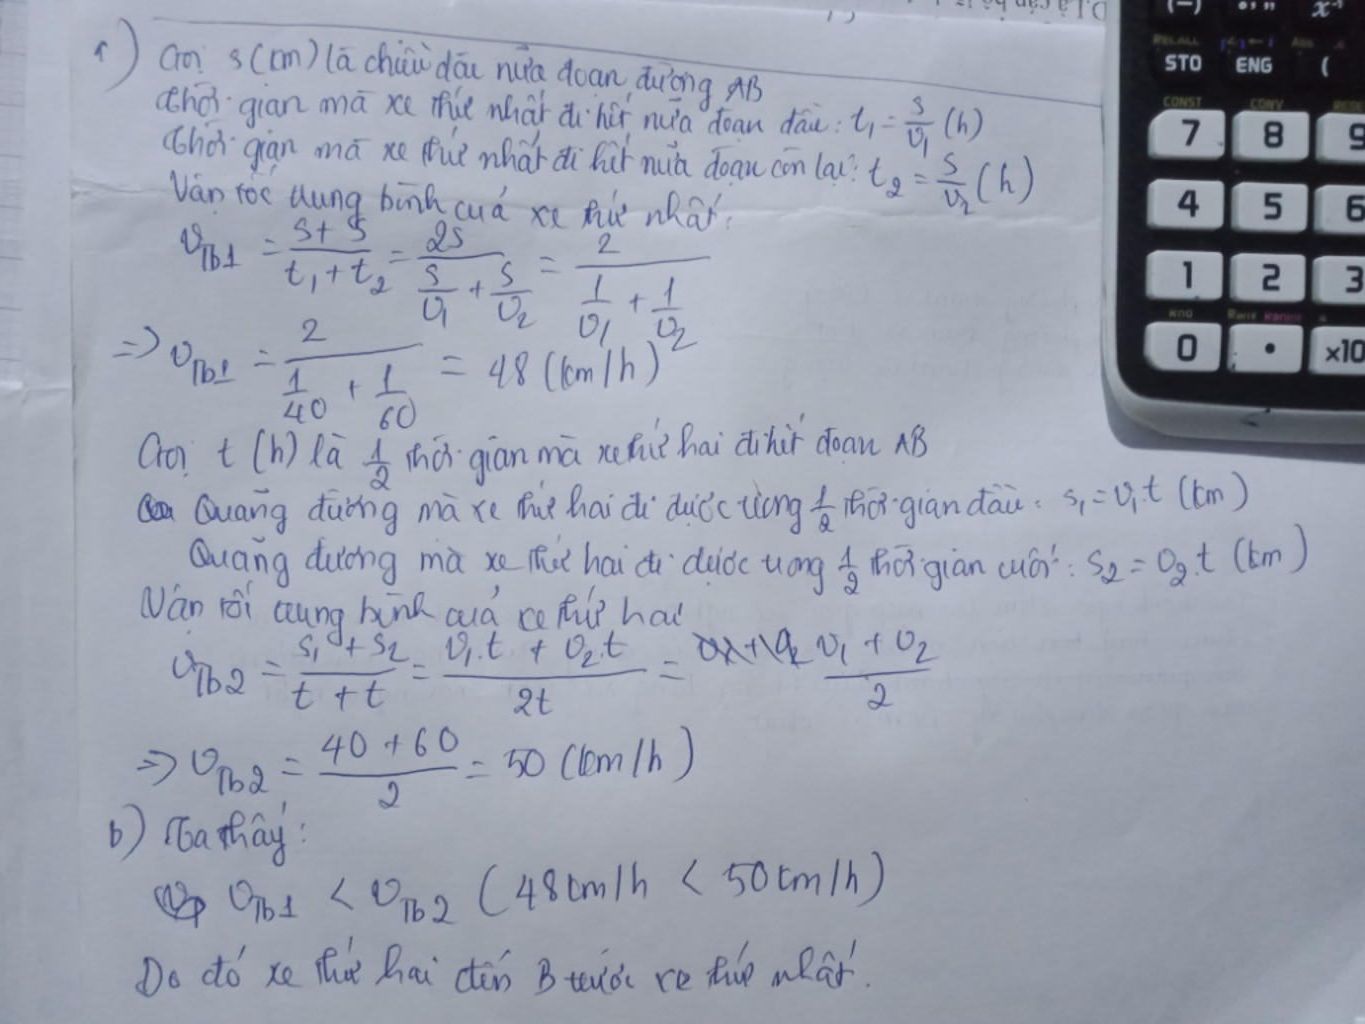 a) Gọi s(km) là chiều dài nửa đoạn đường AB
Thời gian mà xe thứ nhất đi hết nửa đoạn đầu: t₁ = s/v₁ (h)
Thời gian mà xe thứ nhất đi hết nửa đoạn còn lại: t₂ = s/v₂ (h)
Vận tốc trung bình của xe thứ nhất:
v_Tb1 = (s + s)/(t₁ + t₂) = 2s/(s/v₁ + s/v₂) = 2/(1/v₁ + 1/v₂)
=> v_Tb1 = 2/(1/40 + 1/60) = 48 (km/h)
Gọi t (h) là 1/2 thời gian mà xe thứ hai đi hết đoạn AB
Quãng đường mà xe thứ hai đi được trong 1/2 thời gian đầu: s₁ = v₁.t (km)
Quãng đường mà xe thứ hai đi được trong 1/2 thời gian cuối: s₂ = v₂.t (km)
Vận tốc trung bình của xe thứ hai
v_Tb2 = (s₁ + s₂)/(t + t) = (v₁.t + v₂.t)/2t = (v₁ + v₂)/2
=> v_Tb2 = (40 + 60)/2 = 50 (km/h)
b) Ta thấy:
v_Tb1 < v_Tb2 (48km/h < 50km/h)
Do đó xe thứ hai đến B trước xe thứ nhất.
(−) °’” x⁻¹
RECALL
STO ENG (
CONST CONV
7 8 9
4 5 6
1 2 3
Rnd Ran# RanInt
0 . ×10